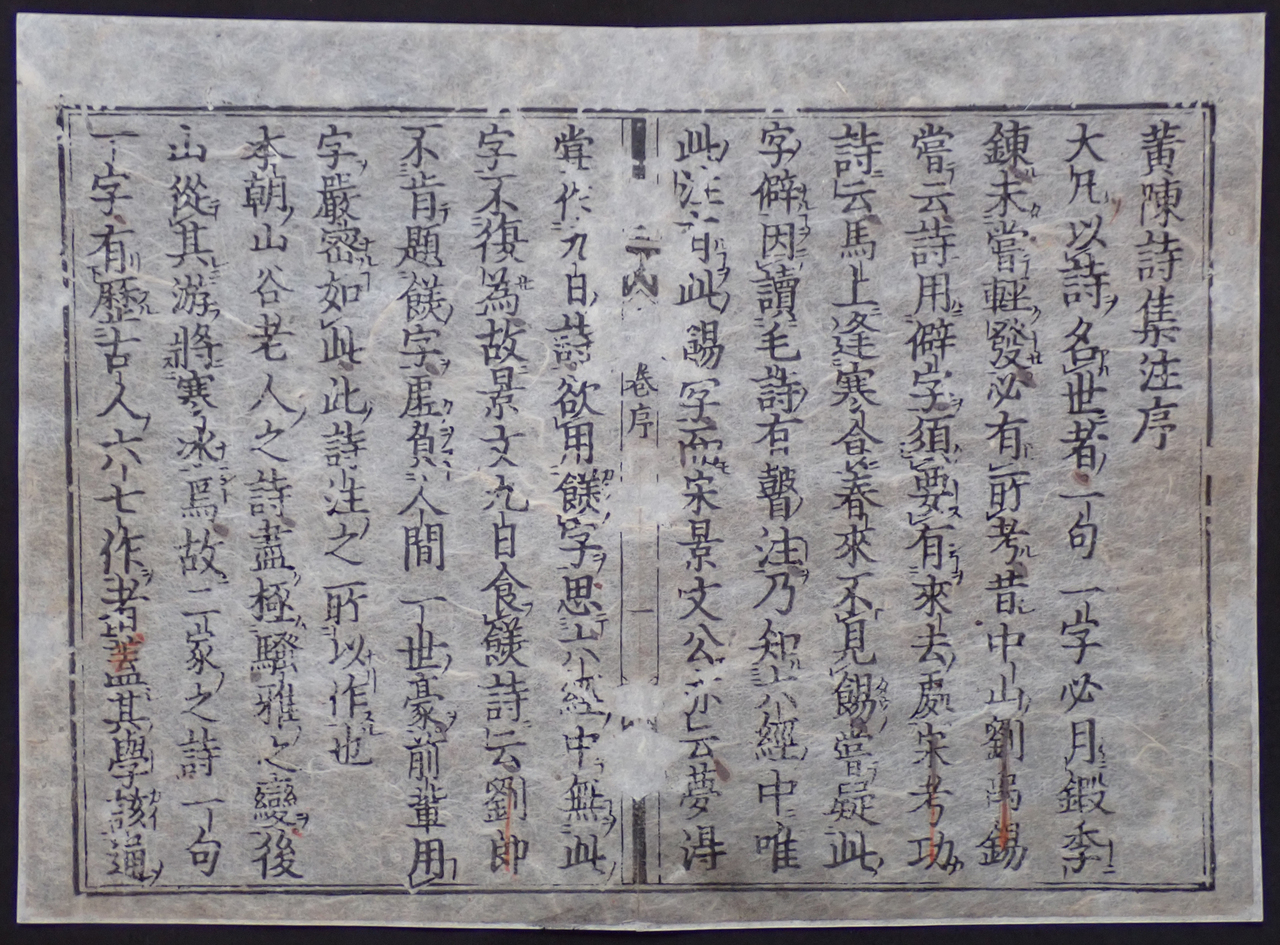 黃陳詩集注序
大凡以詩名世者一句一字必月鍛季
鍊未嘗輕發必有所考昔中山劉禹錫
嘗云詩用僻字須要有來去處宋考功
詩云馬上逢寒食春來不見餳嘗疑此
字僻因讀毛詩有瞽注乃知六經中唯
此注有此餳字而宋景文公亦云夢得
嘗作九日詩欲用餻字思六經中無此
字不復為故景文九日食餻詩云劉郎
不肯題餻字虛負人間一世豪前輩用
字嚴密如此此詩注之所以作也
本朝山谷老人之詩盡極騷雅之變後
山從其游將寒冰焉故二家之詩一句
一字有歷古人六七作者蓋其學該通
二
卷序
一